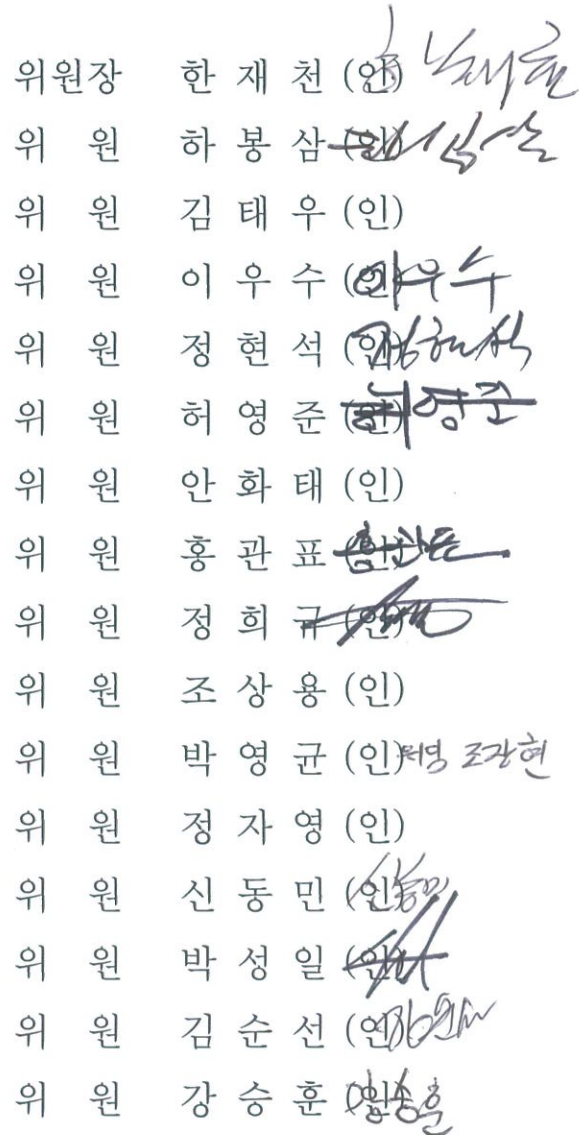 위원장 한 재 천 (인)
위 원 하 봉 삼 (인)
위 원 김 태 우 (인)
위 원 이 우 수 (인) 이우수
위 원 정 현 석 (인) 정현석
위 원 허 영 준 (인) 허영준
위 원 안 화 태 (인)
위 원 홍 관 표 (인) 홍관표
위 원 정 희 규 (인)
위 원 조 상 용 (인)
위 원 박 영 균 (인) 조강현
위 원 정 자 영 (인)
위 원 신 동 민 (인)
위 원 박 성 일 (인)
위 원 김 순 선 (인)
위 원 강 승 훈 (인) 강승훈